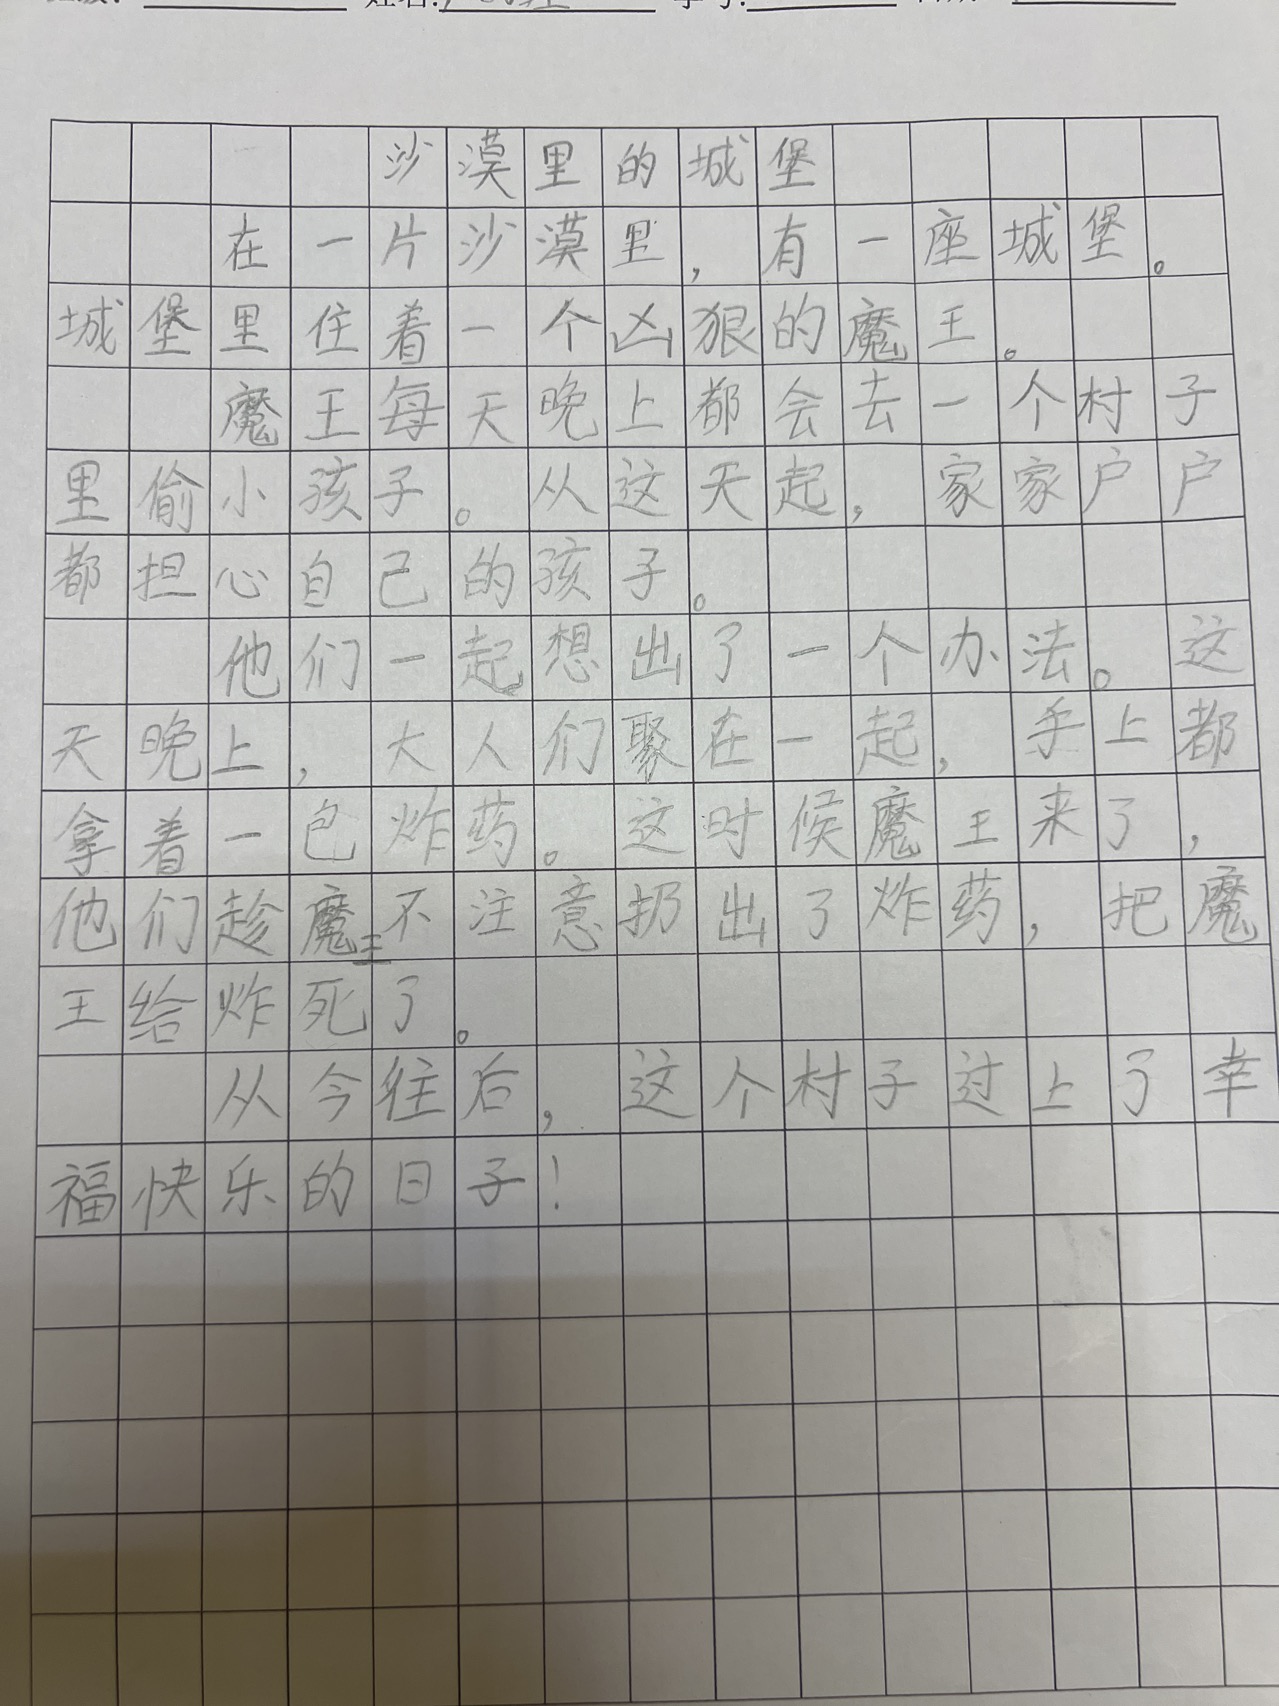 姓名:
沙漠里的城堡
在一片沙漠里，有一座城堡。
城堡里住着一个凶狠的魔王。
魔王每天晚上都会去一个村子
里偷小孩子。从这天起，家家户户
都担心自己的孩子。
他们一起想出了一个办法。这
天晚上，大人们聚在一起，手上都
拿着一包炸药。这时候魔王来了，
他们趁魔王不注意扔出了炸药，把魔
王给炸死了。
从今往后，这个村子过上了幸
福快乐的日子！